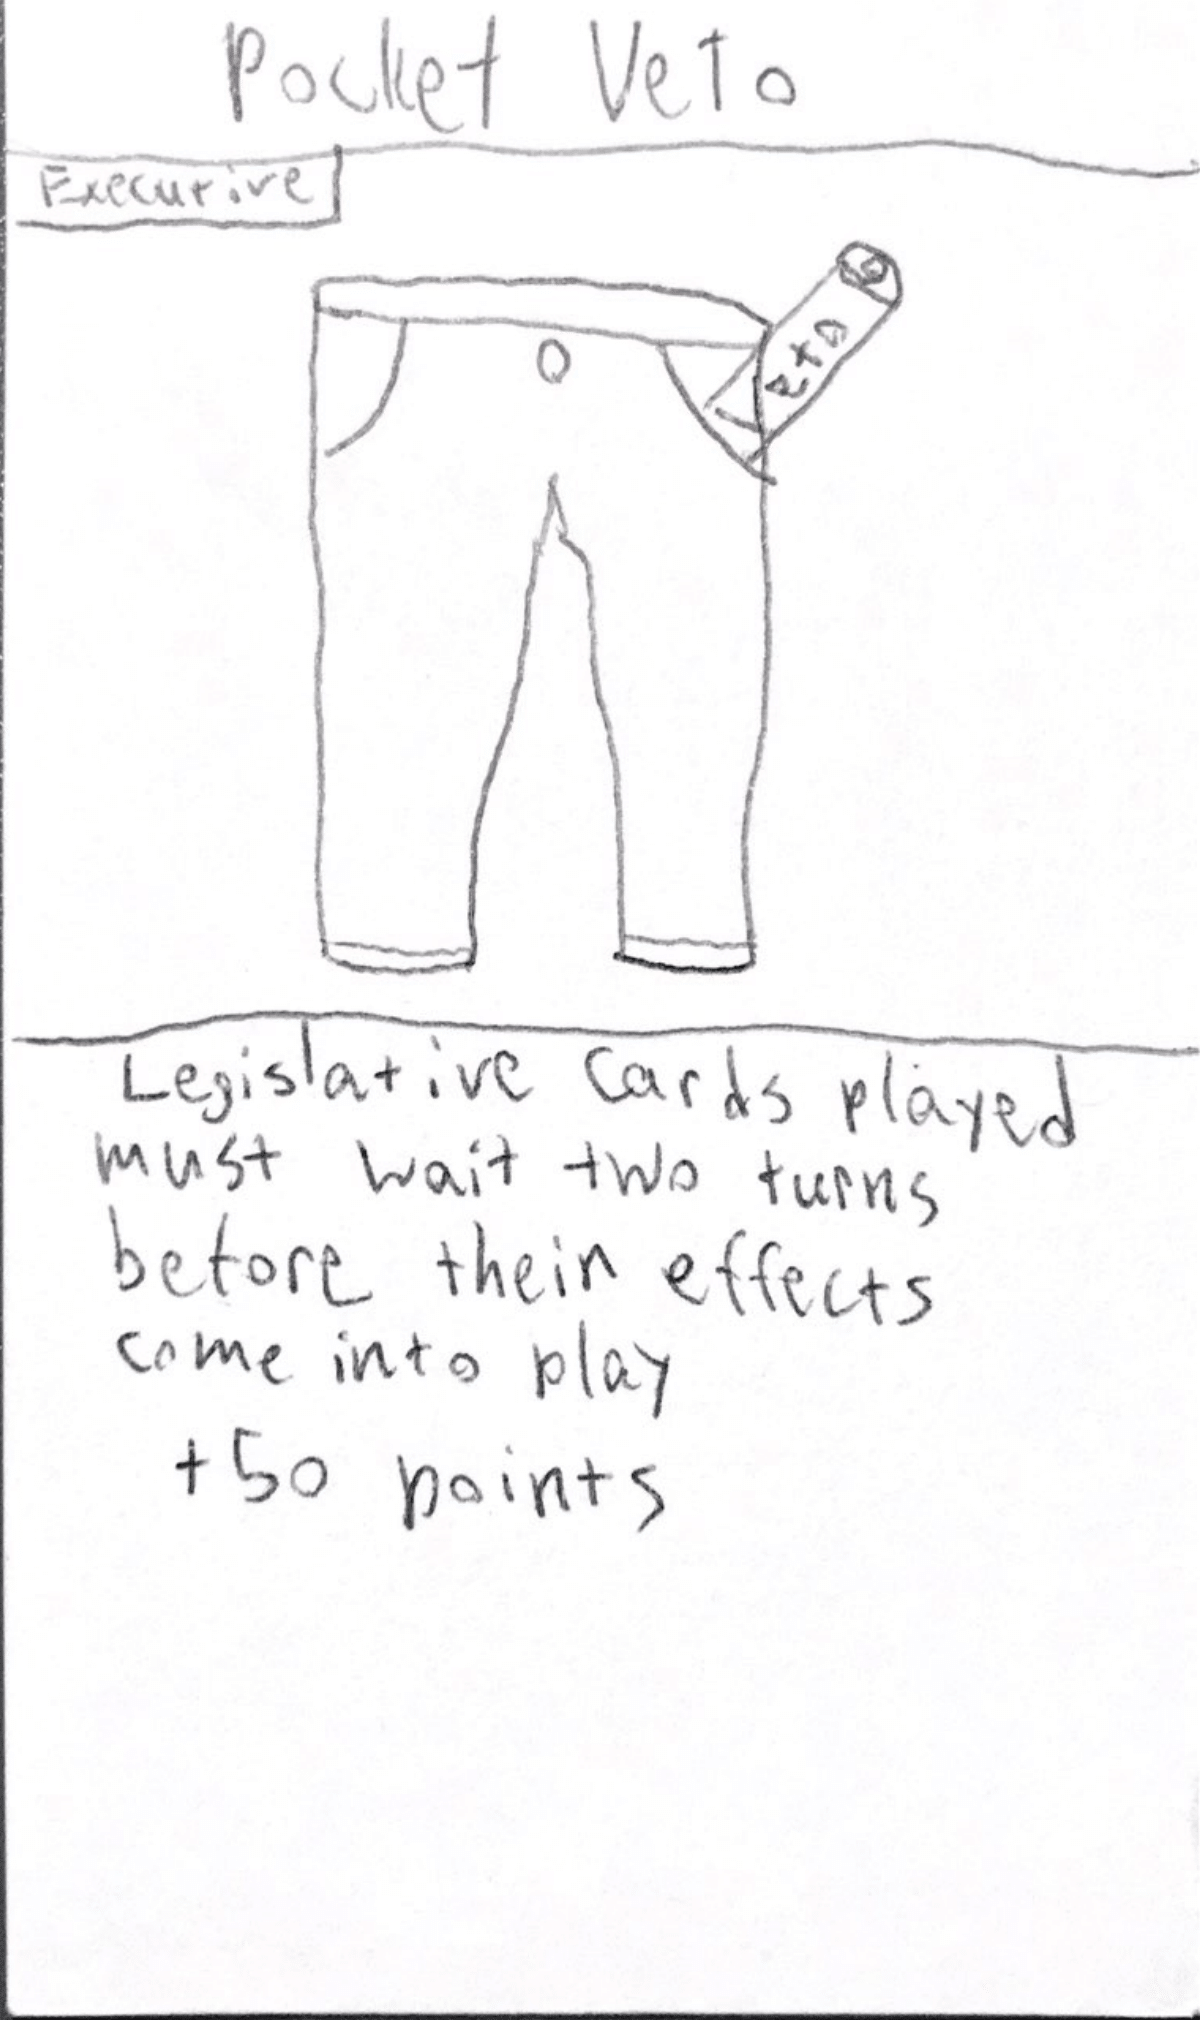 Pocket Veto
Executive
Veto
Legislative Cards played
must wait two turns
before their effects
come into play
+50 points